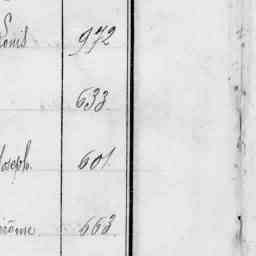 Louis 972
633
Joseph. 601.
érôme. 663.